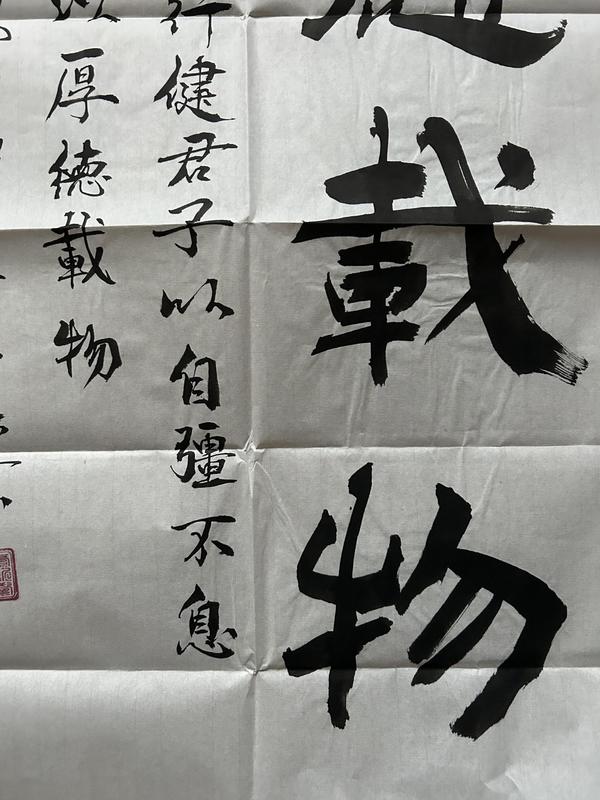 載物
行健君子以自彊不息
以厚德載物